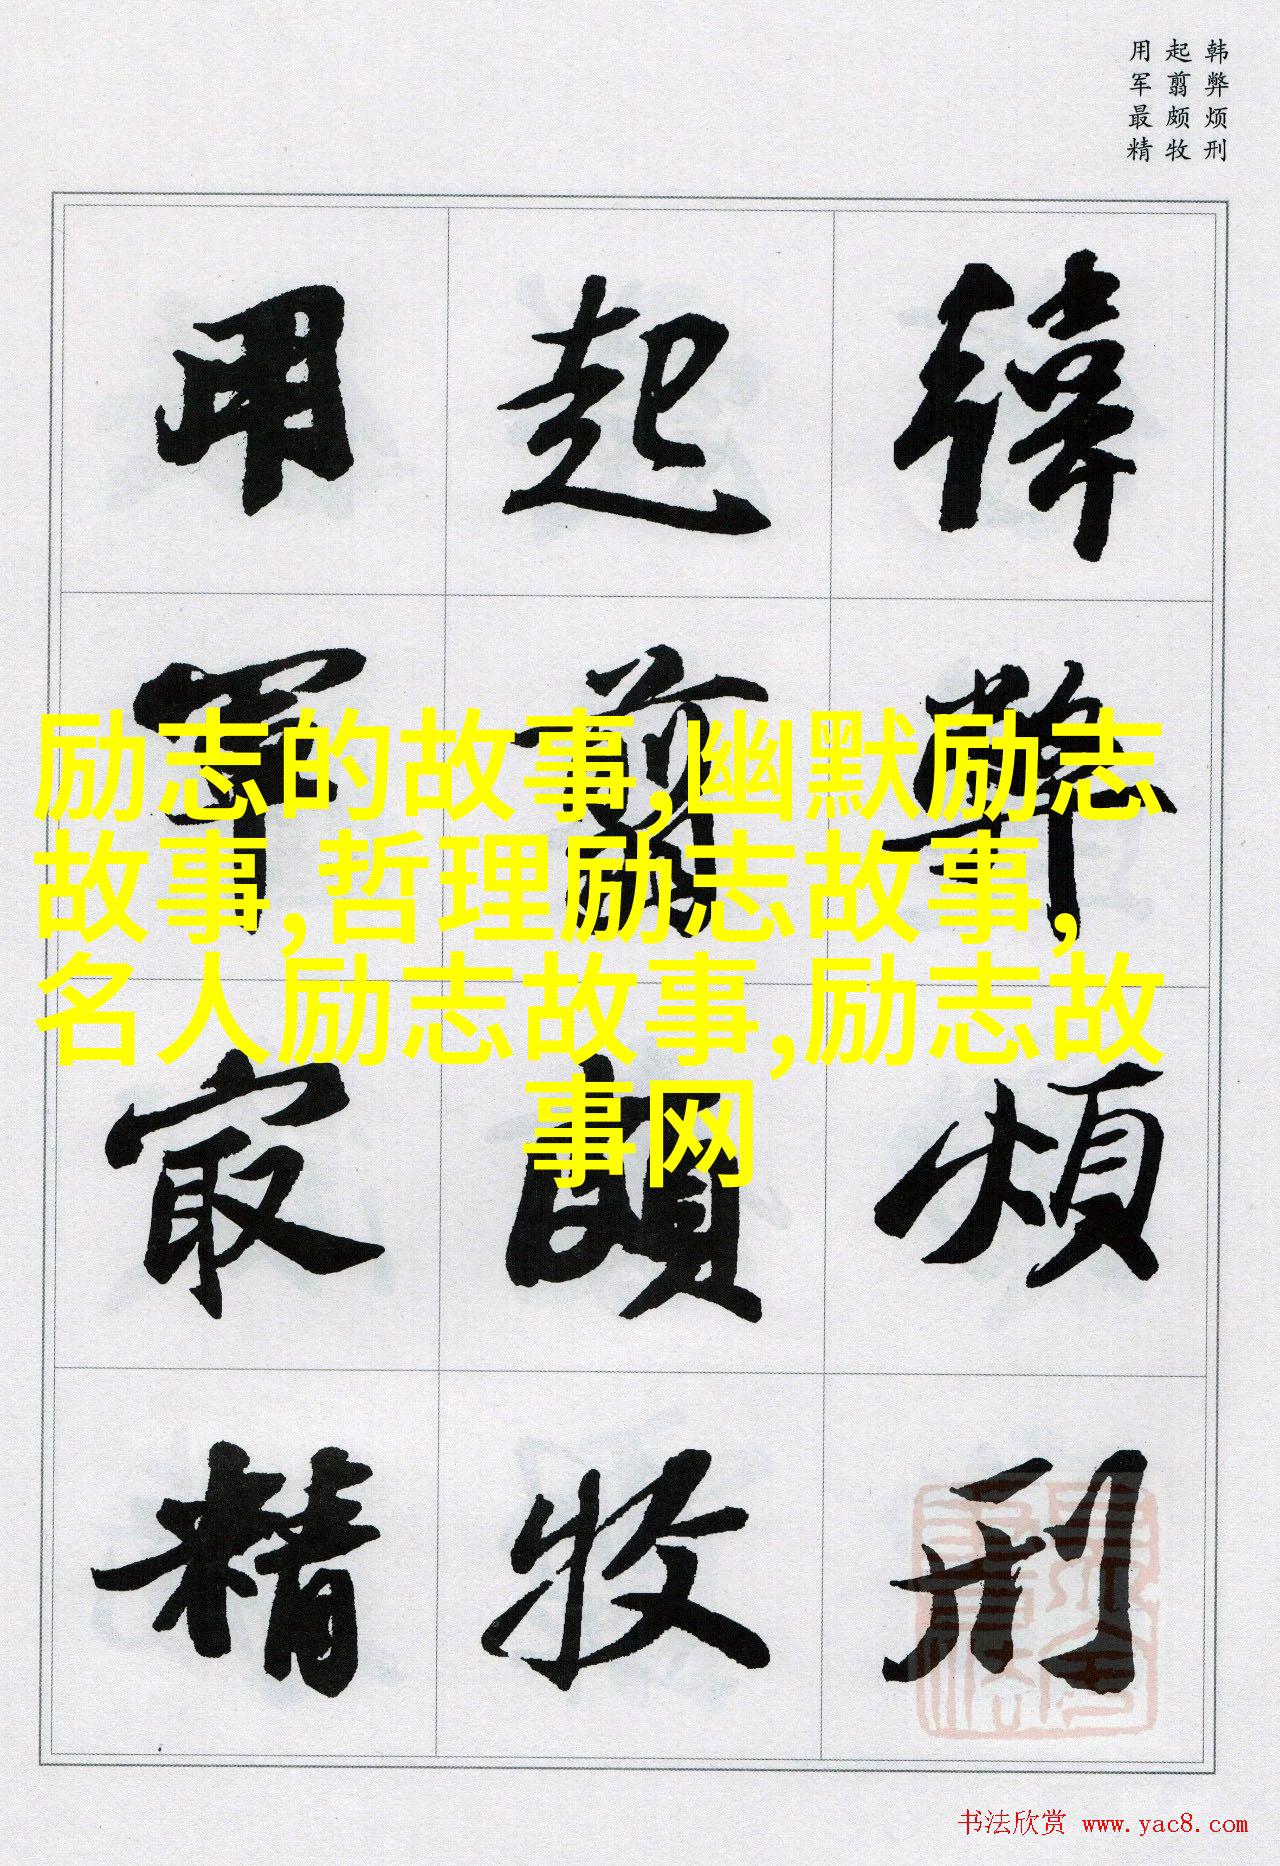 韩弊烦刑
起翦颇牧
用军最精
韓弊煩刑
起翦頗牧
用軍最精
励志的故事,幽默励志
故事,哲理励志故事,
名人励志故事,励志故
事网
书法欣赏 www.yac8.com